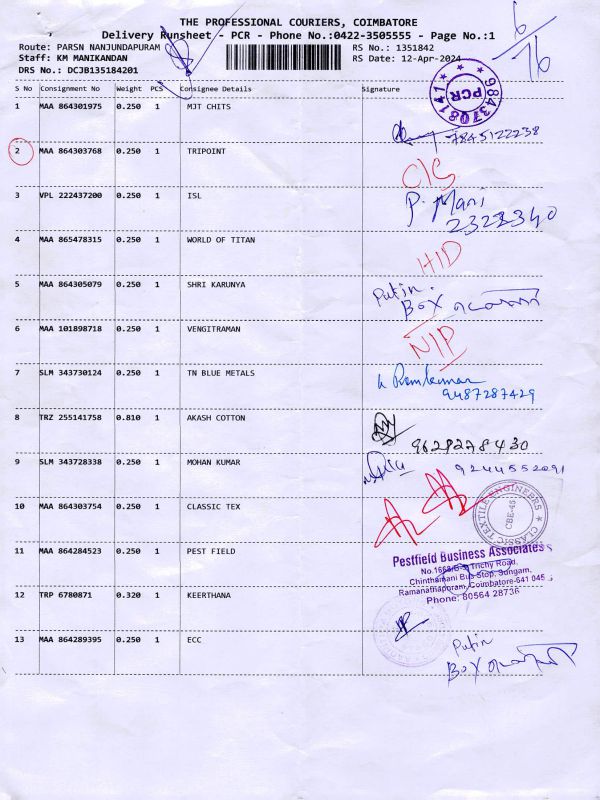 THE PROFESSIONAL COURIERS, COIMBATORE
Delivery Runsheet - PCR - Phone No.:0422-3505555 - Page No.:1
Route: PARSN NANJUNDAPURAM
Staff: KM MANIKANDAN
DRS No.: DCJB135184201
RS No.: 1351842
RS Date: 12-Apr-2024
6/76
S No Consignment No Weight PCS Consignee Details Signature
PCR
9843708141
1 MAA 864301975 0.250 1 MJT CHITS
7845122238
2 MAA 864303768 0.250 1 TRIPOINT
C/S
3 VPL 222437200 0.250 1 ISL P. Mani
2323340
4 MAA 865478315 0.250 1 WORLD OF TITAN
HID
5 MAA 864305079 0.250 1 SHRI KARUNYA
Putin
BOX
6 MAA 101898718 0.250 1 VENGITRAMAN
NIP
7 SLM 343730124 0.250 1 TN BLUE METALS
9487287429
8 TRZ 255141758 0.810 1 AKASH COTTON
9629278430
9 SLM 343728338 0.250 1 MOHAN KUMAR 9244552091
10 MAA 864303754 0.250 1 CLASSIC TEX
CLASSIC TEXTILE ENGINEERS
CBE-45
11 MAA 864284523 0.250 1 PEST FIELD
Pestfield Business Associates
Trichy Road,
Chinthamani Bus Stop, Sungam,
Ramanathapuram, Coimbatore-641 045
Phone: 80564 28736
12 TRP 6780871 0.320 1 KEERTHANA
13 MAA 864289395 0.250 1 ECC
Putin
BOX